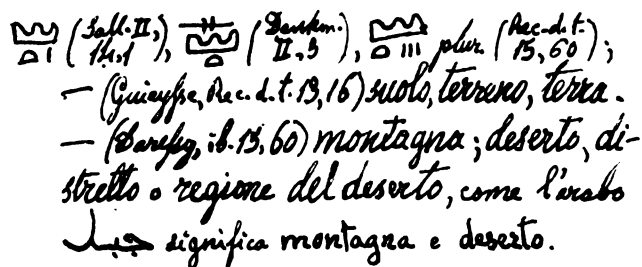 𓈉𓏏𓏤 (Sall. II, 14,1), 𓈉𓏏 (Denkm. II, 3), 𓈉𓏏𓏥 plur. (Rec. d. t. 15, 60);
— (Guieysse, Rec. d. t. 13, 16) suolo, terreno, terra.
— (Daressy, ib. 15, 60) montagna; deserto, di-
stretto o regione del deserto, come l'arabo
جبل significa montagna e deserto.